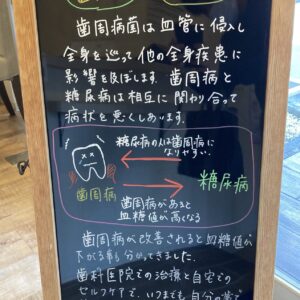 歯周病菌は血管に侵入し
全身を巡って他の全身疾患に
影響を及ぼします 歯周病と
糖尿病は相互に関わり合って
病状を悪くしあいます。
糖尿病の人は歯周病に
なりやすい。
歯周病
糖尿病
歯周病があると
血糖値が高くなる
歯周病が改善されると血糖値が
下がる事も分かってきました。
歯科医院での治療と自宅での
セルフケアで、いつまでも自分の歯で